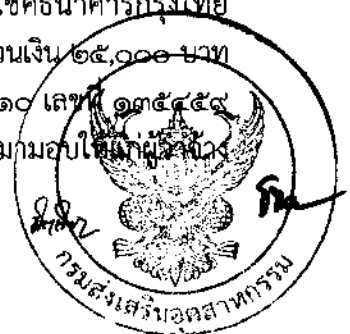 ธนาคารกรุงไทย
เงิน ๒๕,๐๐๐ บาท
๑๐ เลขที่ ๑๓๕๔๕๙
มามอบให้แก่ผู้ว่าจ้าง
กรมส่งเสริมอุตสาหกรรม